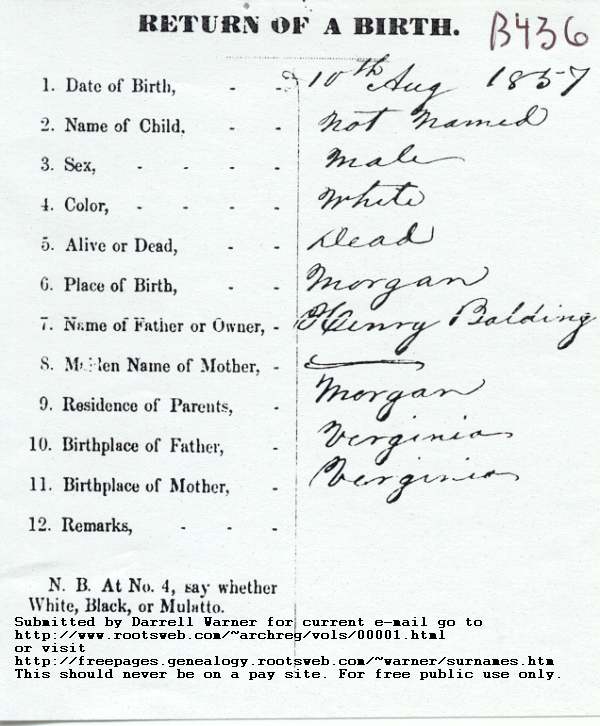 RETURN OF A BIRTH. B436
1. Date of Birth, - - 10th Aug 1857
2. Name of Child, - - not named
3. Sex, - - - - male
4. Color, - - - - White
5. Alive or Dead, - - Dead
6. Place of Birth, - - Morgan
7. Name of Father or Owner, - Henry Balding
8. Maiden Name of Mother, -
9. Residence of Parents, - Morgan
10. Birthplace of Father, - Verginia
11. Birthplace of Mother, - Verginia
12. Remarks, - - -
N. B. At No. 4, say whether
White, Black, or Mulatto.
Submitted by Darrell Warner for current e-mail go to
http://www.rootsweb.com/~archreg/vols/00001.html
or visit
http://freepages.genealogy.rootsweb.com/~warner/surnames.htm
This should never be on a pay site. For free public use only.